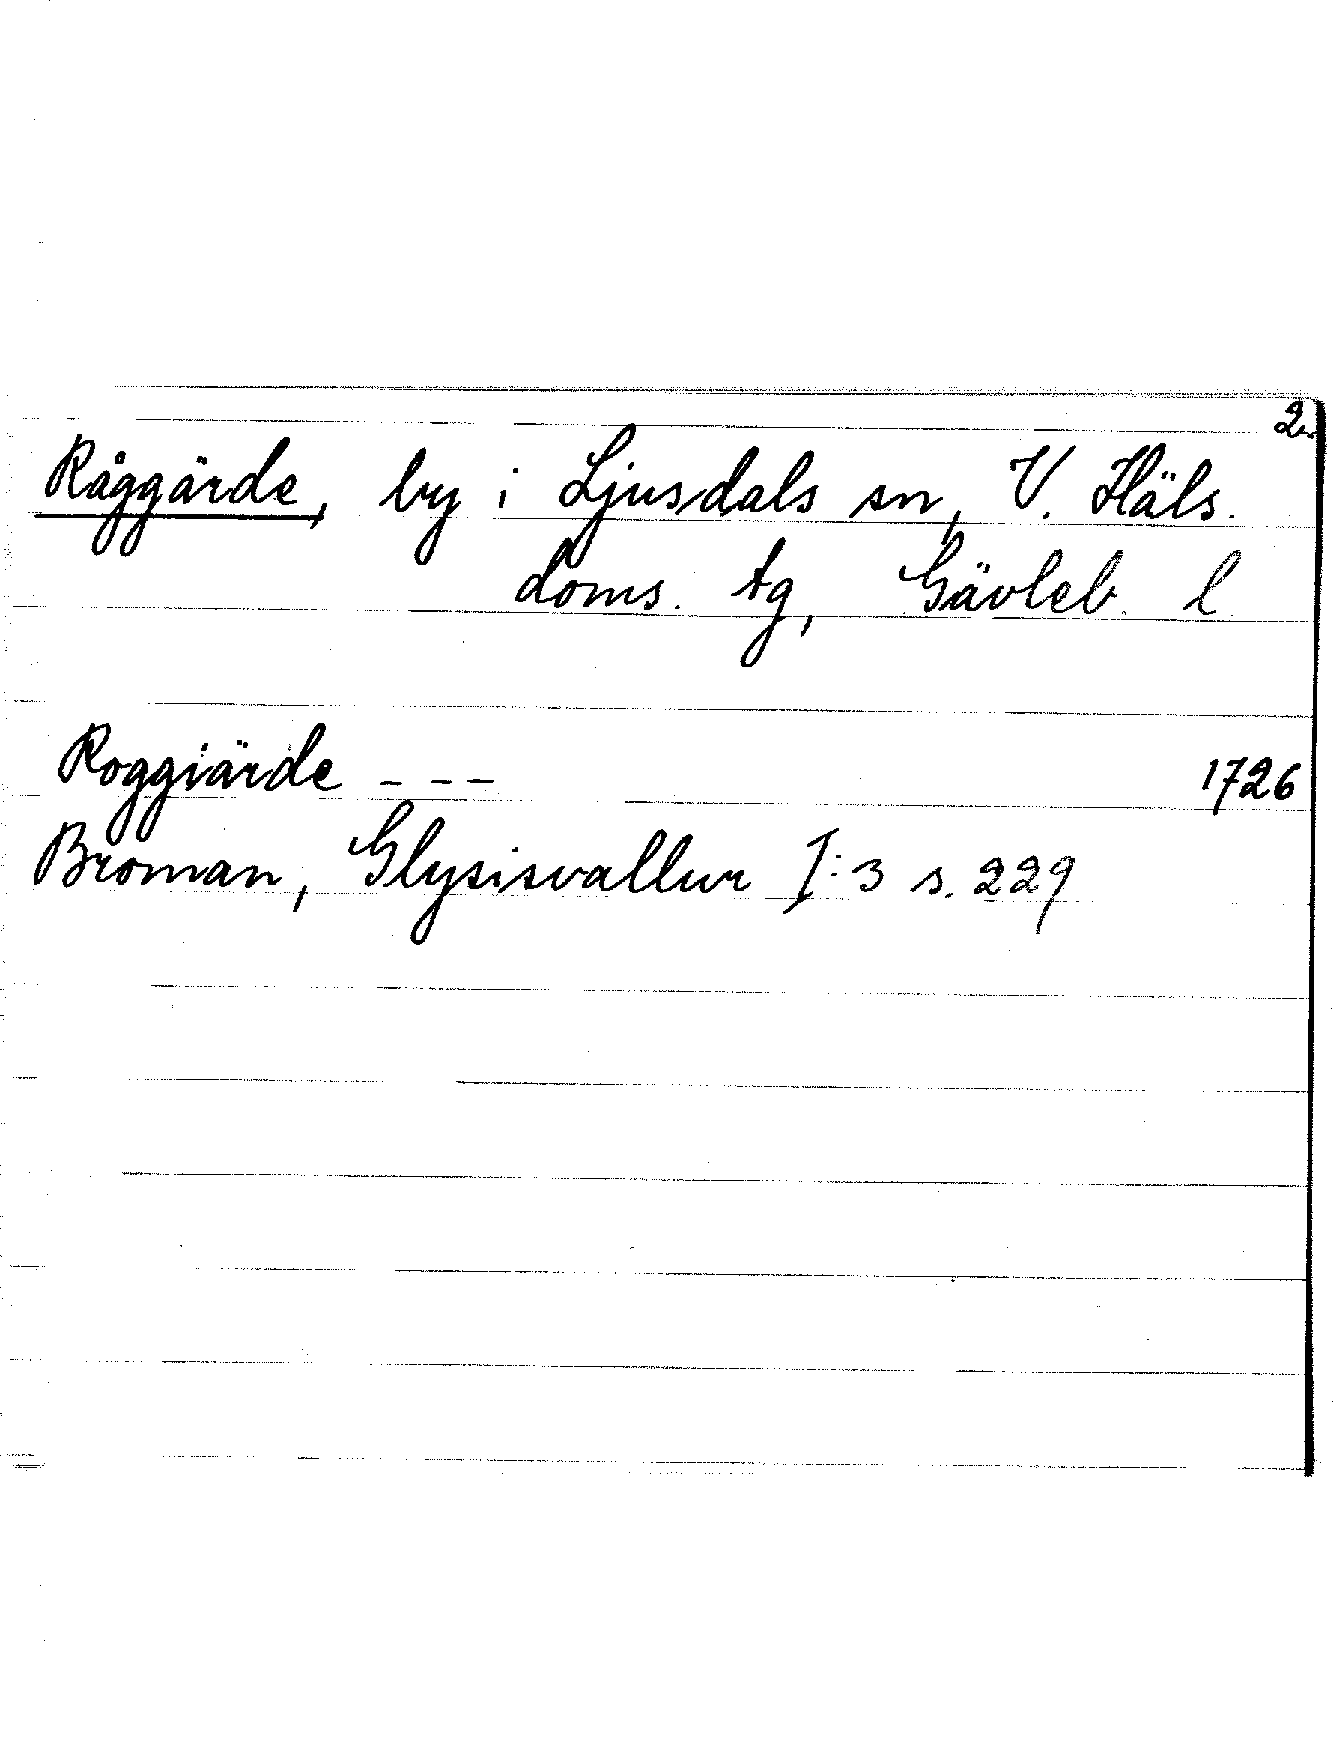 2.
Råggärde, by i Ljusdals sn, V. Häls.
doms. tg, Gävleb. l
Roggiärde - - - 1726
Broman, Glysisvallur I:3 s. 229